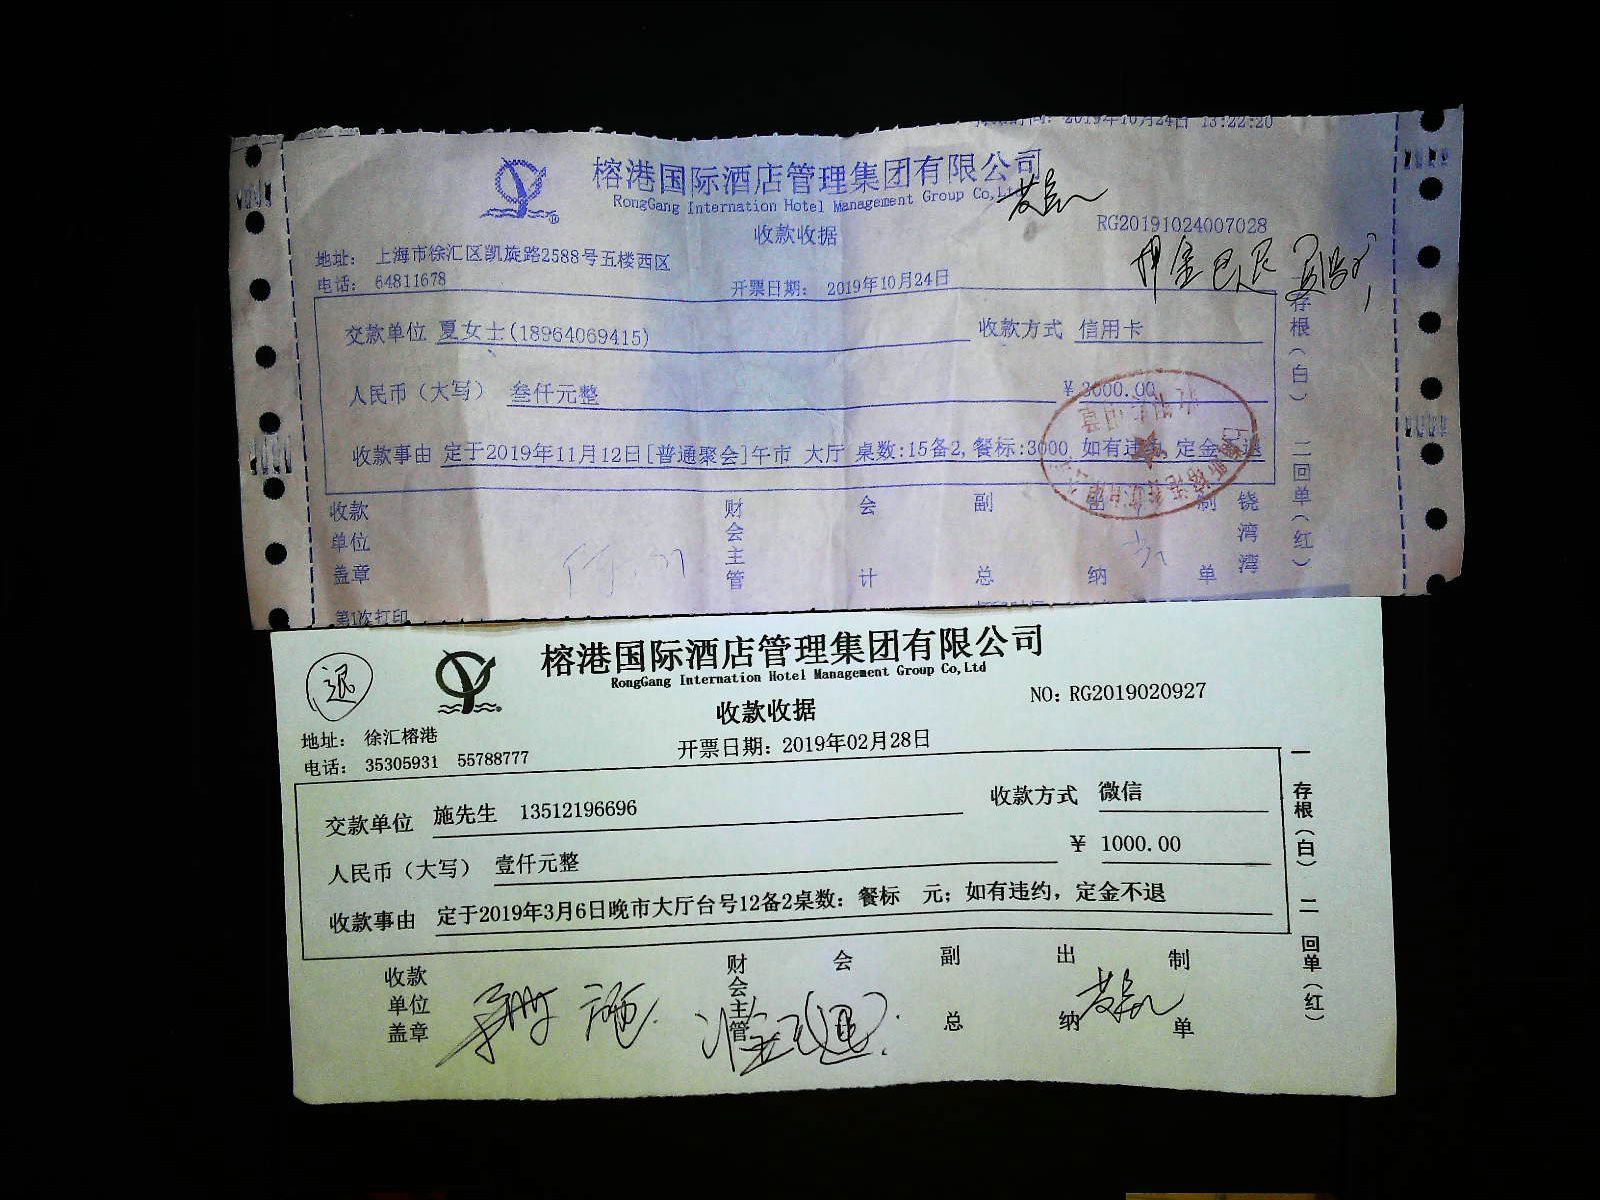 2019年10月24日 13:22:20
榕港国际酒店管理集团有限公司
RongGang Internation Hotel Management Group Co,Ltd
收款收据
RG20191024007028
地址： 上海市徐汇区凯旋路2588号五楼西区
电话： 64811678
开票日期： 2019年10月24日
押金已退
交款单位 夏女士(18964069415)
收款方式 信用卡
人民币（大写） 叁仟元整
￥3000.00
收款事由 定于2019年11月12日[普通聚会]午市 大厅 桌数:15备2,餐标:3000 如有违约, 定金不退
存根（白） 二回单（红）
收款单位盖章
财会主管
会计
副总
出纳
制单
饶湾湾
第1次打印
退
榕港国际酒店管理集团有限公司
RongGang Internation Hotel Management Group Co,Ltd
收款收据
NO: RG2019020927
地址： 徐汇榕港
电话： 35305931 55788777
开票日期： 2019年02月28日
交款单位 施先生 13512196696
收款方式 微信
人民币（大写） 壹仟元整
￥ 1000.00
收款事由 定于2019年3月6日晚市大厅台号12备2桌数： 餐标 元；如有违约，定金不退
一存根（白） 二回单（红）
收款单位盖章
财会主管
会
副总
出纳
制单